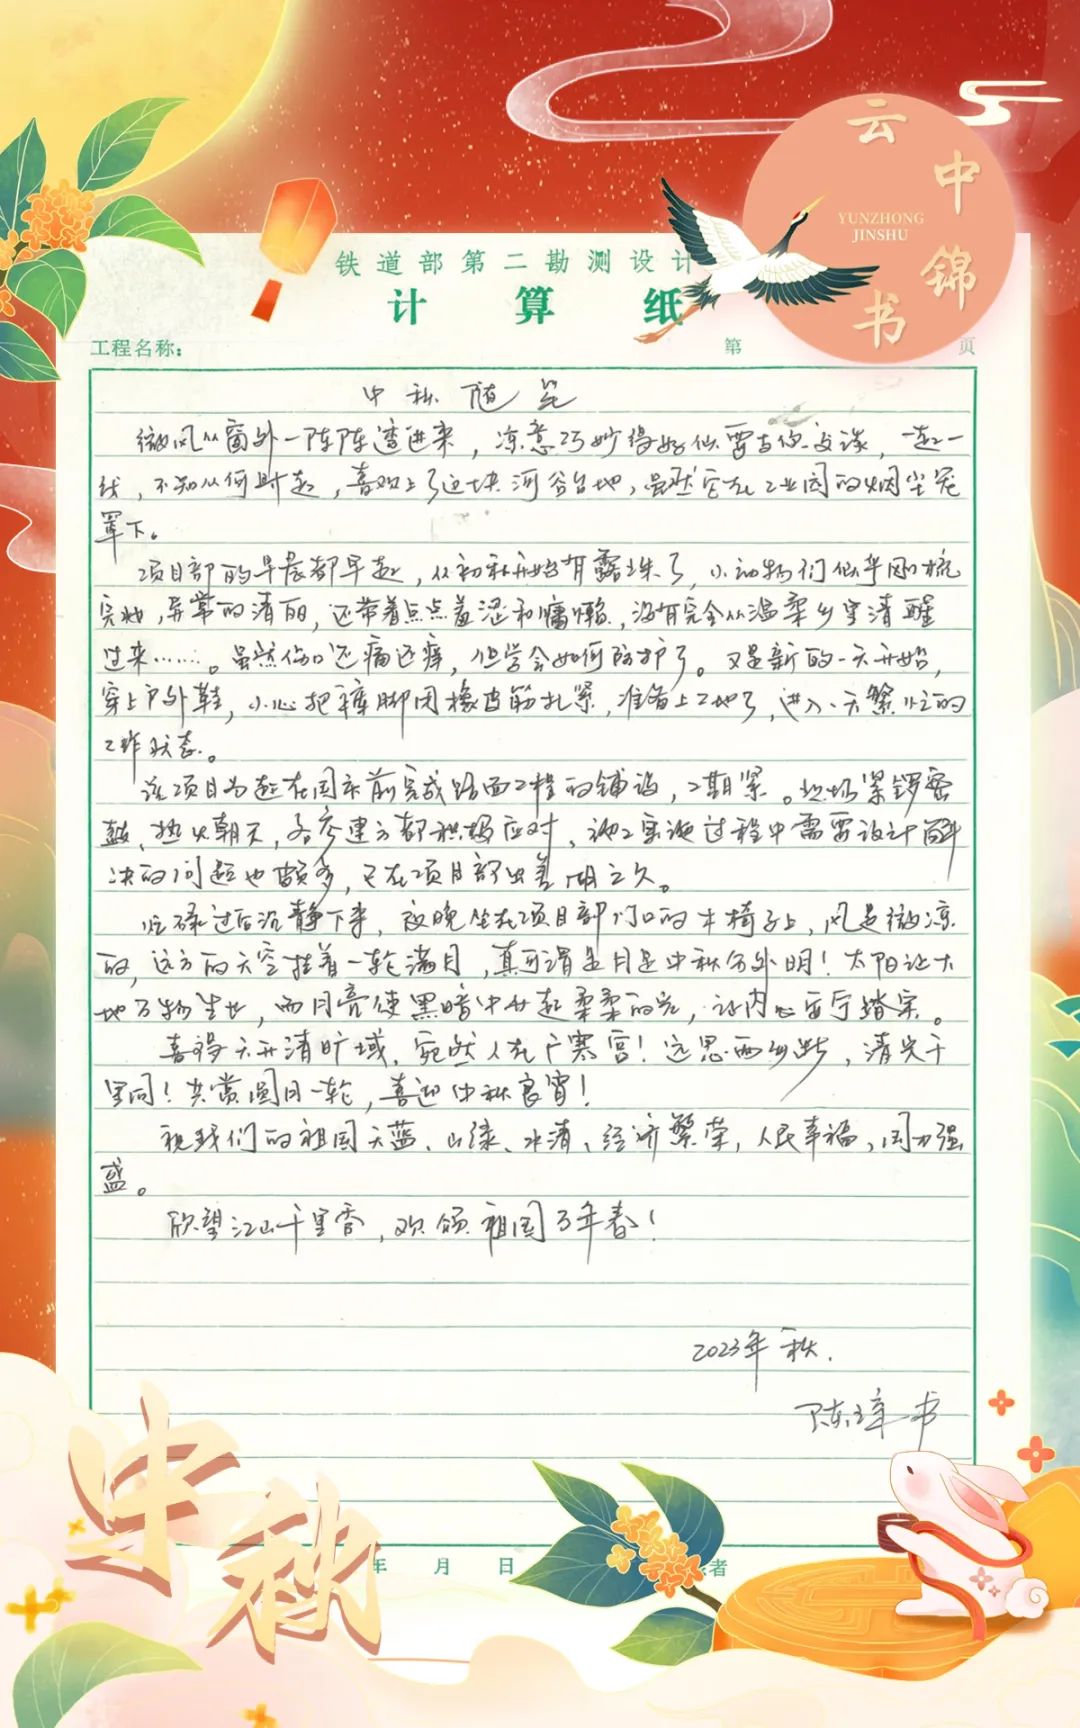 云中锦书
YUNZHONG
JINSHU
铁道部第二勘测设计
计算纸
工程名称:
第 页
中秋随笔
微风从窗外一阵阵漕进来，凉意巧妙得好似要与你交谈，一起一
伏，不知从何时起，喜欢上了这块河谷台地，虽然它在工业园的烟尘笼
罩下。
项目部的早晨都早起，从初秋开始有露珠了，小动物们似乎刚梳
完妆，异常的清丽，还带着点点羞涩和慵懒，没有完全从温柔乡里清醒
过来……。虽然伤口还痛还痒，但学会如何防护了。又是新的一天开始，
穿上户外鞋，小心把裤脚用橡皮筋扎紧，准备上工地了，进入一天繁忙的
工作状态。
该项目为赶在国庆前完成路面工程的铺设，工期紧。现场紧锣密
鼓、热火朝天，各参建方都积极应对，施工实施过程中需要设计解
决的问题也颇多，已在项目部出差 之久。
忙碌过后沉静下来，夜晚坐在项目部门口的 椅子上，风是微凉
的，远方的天空挂着一轮满月，真可谓是月是中秋分外明！太阳让大
地万物生长，而月亮使黑暗中升起柔柔的光，让内心安宁踏实。
喜得天开清旷域，宛然人在广寒宫！远思两 ，清光千
里同！共赏圆月一轮，喜迎中秋良宵！
祝我们的祖国天蓝、山绿、水清、经济繁荣，人民幸福，国力强
盛。
欣望江山千里秀，欢颂祖国万年春！
2023年秋.
陈 书
中秋
年 月 日 者